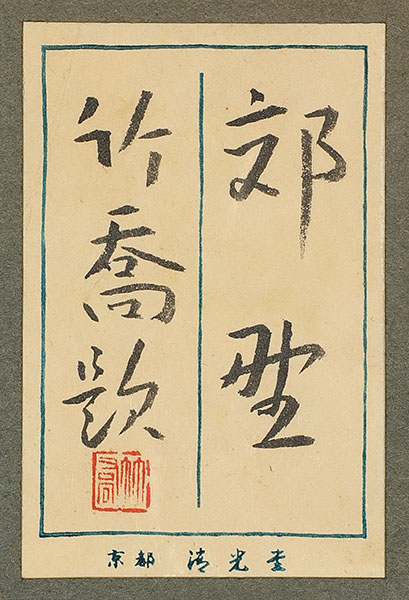 郊野
竹喬題
竹喬
京都 清光堂